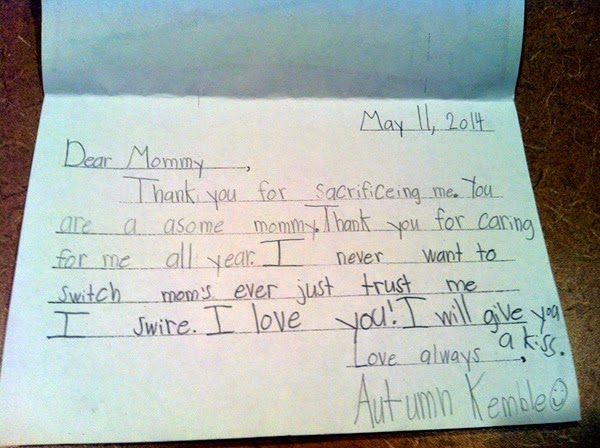 May 11, 2014
Dear Mommy,
Thank you for sacrificeing me. You
are a asome mommy. Thank you for caring
for me all year. I never want to
switch mom's ever just trust me
I swire. I love you! I will give you
a kiss.
Love always,
Autumn Kemble☺